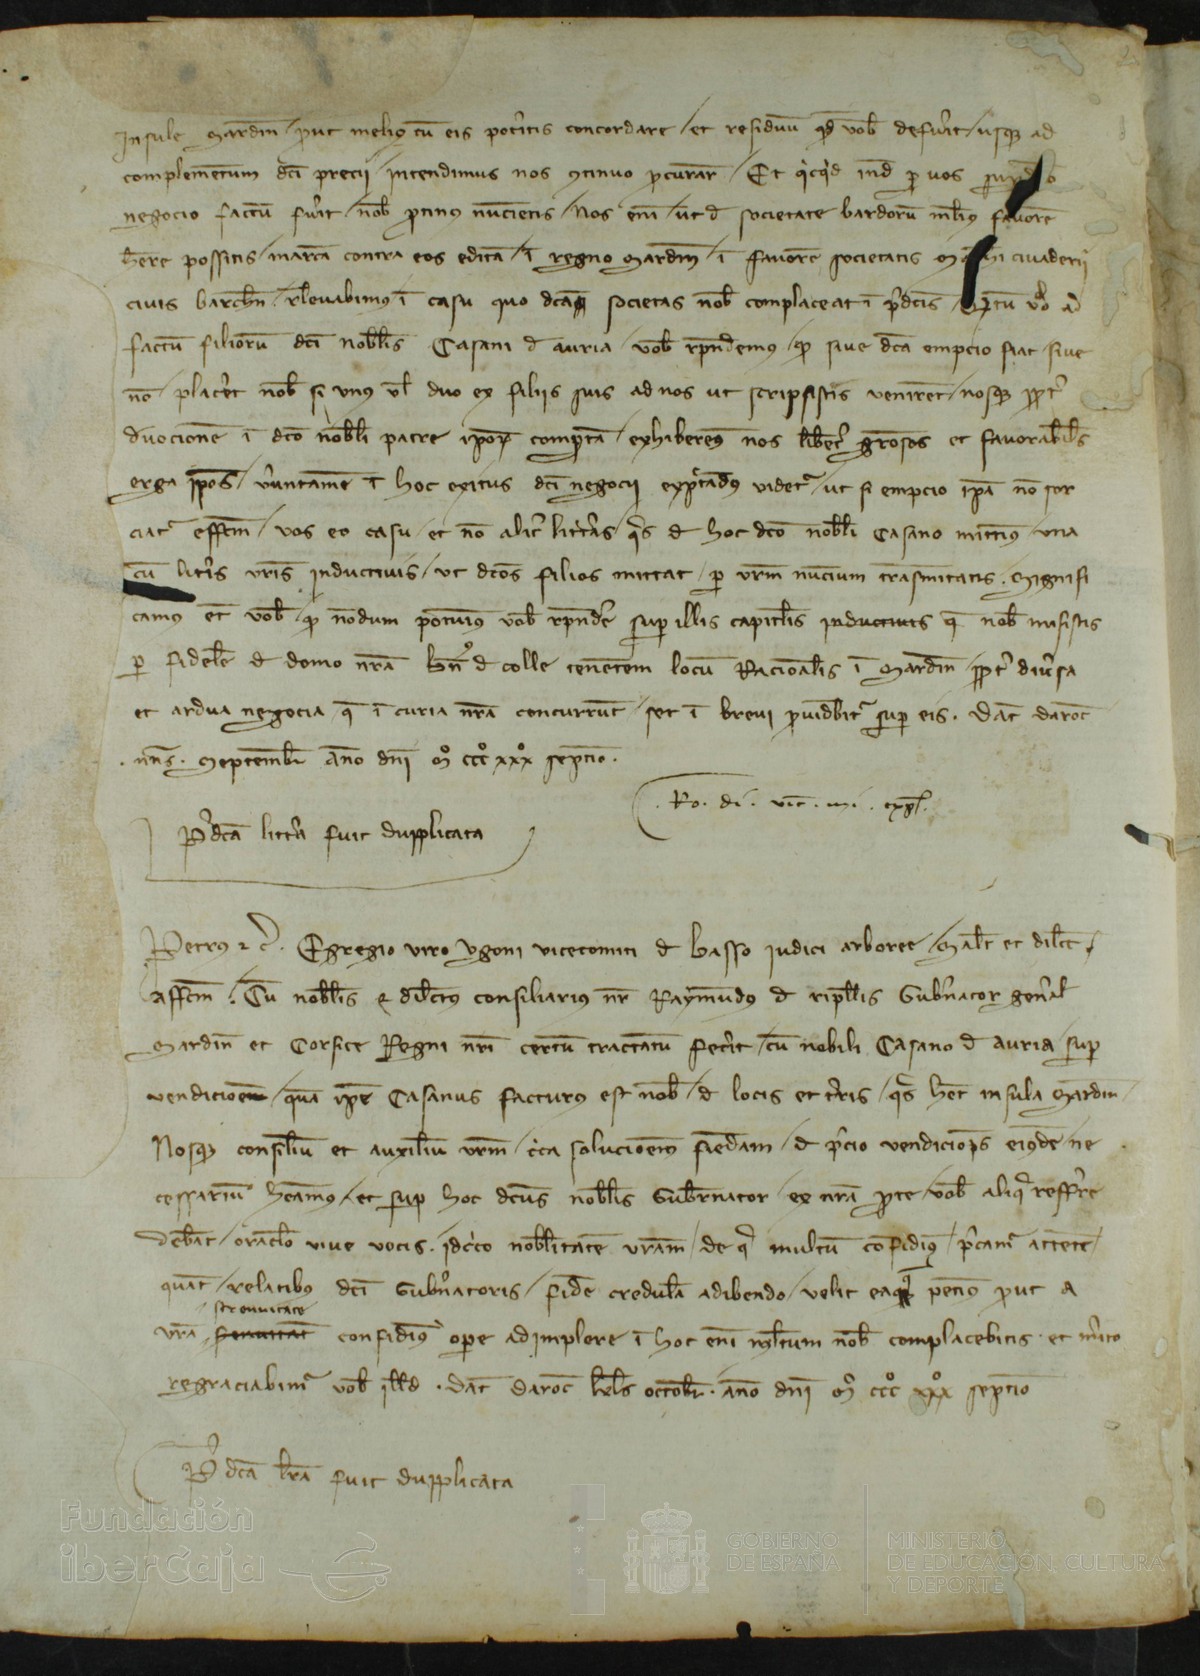 Insule Sardin / prut meli9 cu eis pot'itis concordare / et residuu qd vob defu'it / usq3 ad
complementum dci precii / intendimus nos 9tinuo p'curar / Et q'cq'd ind p vos
negocio factu fu'it / nob p'tinus nuncietis / Nos eni ut d societate bardoru mli9 favore
h'ere possitis / marca contra eos edita i regno Sardin / i favore societatis civaderii
civis barchn / r'levabimus i casu quo dca societas nob complaceat i p'dcis / Qrtu v'o ad
factu filioru dci nobilis Casani d Auria / vob rpndemus / qp sive dca empcio fiat / sive
no / plac'et nob si unus vl duo ex filiis suis ad nos ut scripsistis veniret / nosq3 ppt'
devocione i dco nobili patre ipor comp'ta / exhiberem9 nos libet' gr'osos et favorabiles
erga ipos / v'untame i hoc exitus dci negocii exp'tad9 videt' / ut si empcio ipa no sor
ciat' effcm / vos eo casu / et no alit' litt'as / q's d hoc dco nobili Casano mittim9 / una
cu lit'is vris inductivis / ut dcos filios mittat / p vrm nuncium trasmitatis . Signifi
camus et vob / qp nodum potuim9 vob rpnde' sup illis capitlis inductivis q nob misistis
p fidele d domo nra bn' d colle tenetem locu Racionalis i Sardin / ppt' div'sa
et ardua negocia / q i curia nra concurrut / set i brevi p'vid'bit' sup eis . Dat Daroc
. nns . Septembr Ano dni Mo ccco xxxo septio .
. Ro . di . vic . mi . expl .
P'dca litt'a fuit dupplicata
Petrus 2 c' . Egregio viro Ugoni vicecomiti d basso iudici arboree / Salt et dilct
affcm . Cu nobilis 2 dilct9 consiliarius nr Raymundus d ripllis Gub'nator gen'al
Sardin et Corsice Regni nri certu tractatu fec'it / cu nobili Casano d Auria / sup
vendicioem / qua ipe Casanus factur9 est nob / d locis et t'ris / q's h'et insula Sardin
Nosq3 consiliu et auxiliu vrm / c'ca solucioem fiedam / d p'cio vendicionis eiusde / ne
cessariu h'eam9 / et sup hoc dcus nobilis Gub'rnator / ex nra p'te / vob aliq' reffr'e
debat / oraclo vive vocis . Idc'co nobilitate vram / de q' multu confidim9 / p'cam' attente /
quat / relatib9 dci Gub'natoris / fide credula adibendo / velit ea penit9 prut a
strenuitate
vra confidim9 ope adimplere i hoc eni mltum nob complacebitis . et m'ito
regraciabim' vob illd . Dat Daroc klds octobr . ano dni Mo ccco xxxo septio
P'dca lra fuit dupplicata
Fundación
iberCaja
GOBIERNO
DE ESPAÑA
MINISTERIO
DE EDUCACIÓN, CULTURA
Y DEPORTE